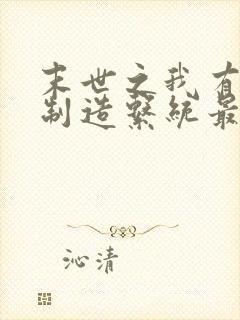 末世之我有
制造系统最
沁清